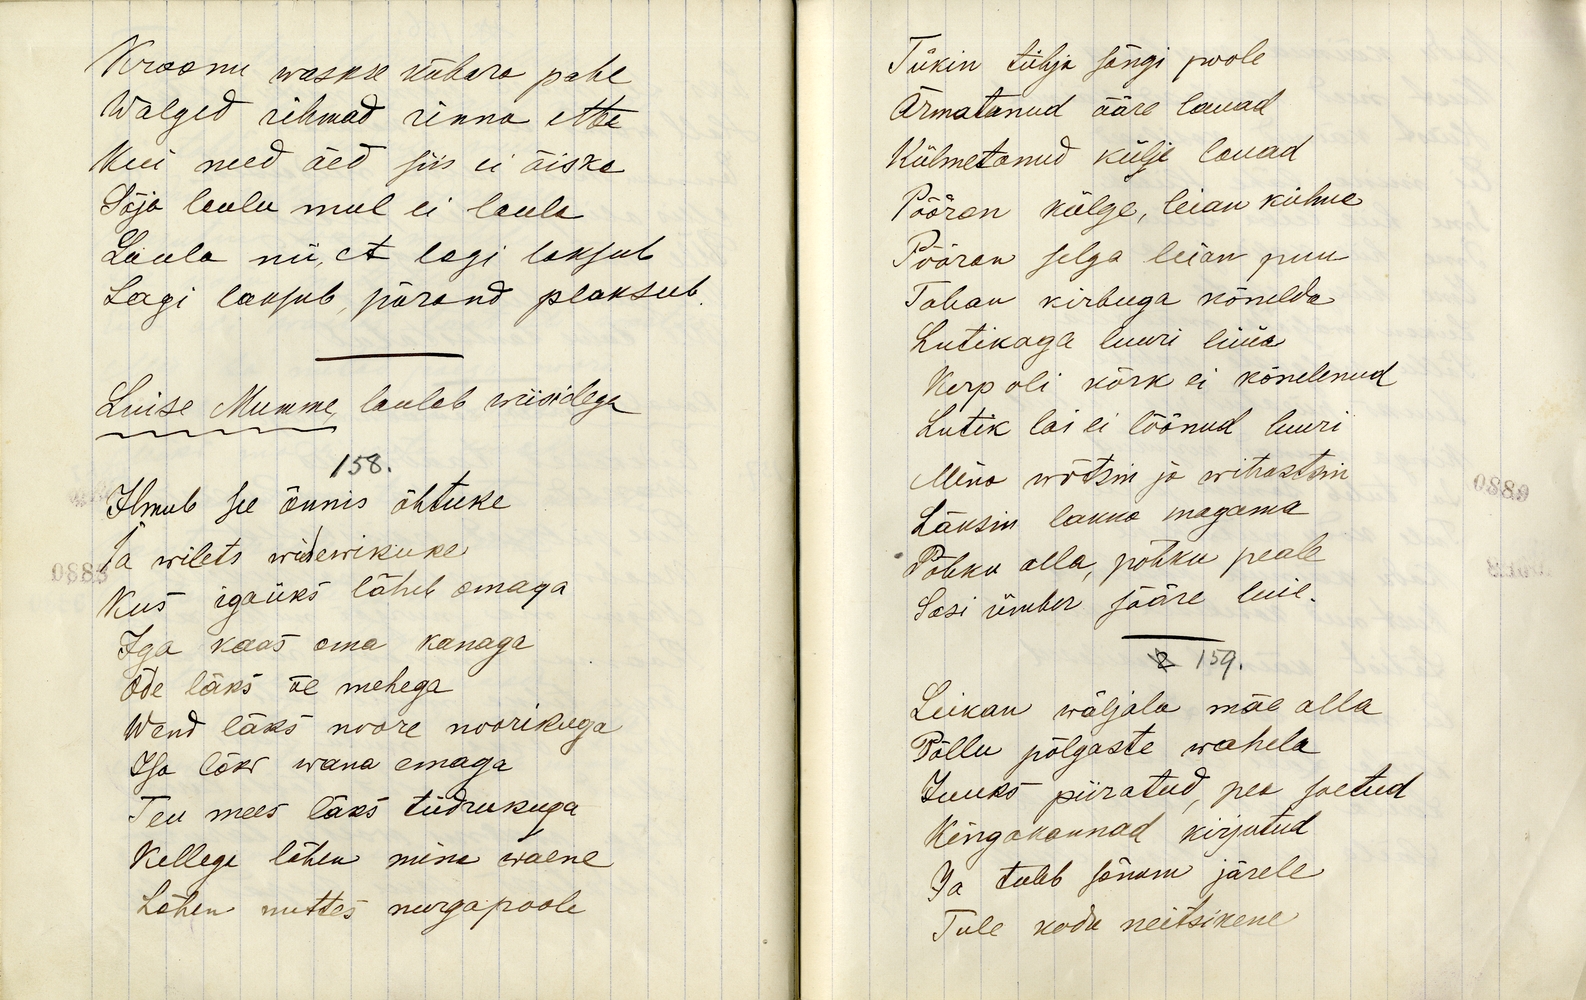 Kroonu waskse kübara pähe
Walged rihmad rinna ette
Kui need äed siis ei äiska
Sõja laulu mul ei laula
Laula nii, et lagi laksub
Lagi laksub, põrand plaksub.
Luise Mumme, laulab wiisidega
158.
Ilmub see õnnis õhtuke
Ja wilets widewikuke
Kus igaüks läheb omaga
Iga kaas oma kanaga
Õde läks õe mehega
Wend läks noore noorikuga
Isa läks wana emaga
Teu mees läks tüdrukuga
Kellega lähen mina waene
Lähen nuttes nurga poole
Tükin tühja sängi poole
Ärmatanud ääre lauad
Külmetanud külje lauad
Pööran külge, leian külma
Pööran selga leian puu
Tahan kirbuga kõnelda
Lutikaga luuri lüüa
Kerp oli kõrk ei kõnelenud
Lutik lai ei löönud luuri
Mina wõtsin ja wihastasin
Läksin lakka magama
Põhku alla, põhku peale
Sasi ümber sääre luie.
159.
Leikan wäljala mäe alla
Põllu põlgaste wahela
Juuks piiratud, pea soetud
Kingakannad kirjutud
Ja tuleb sõnum järele
Tule kodu neitsikene
0889